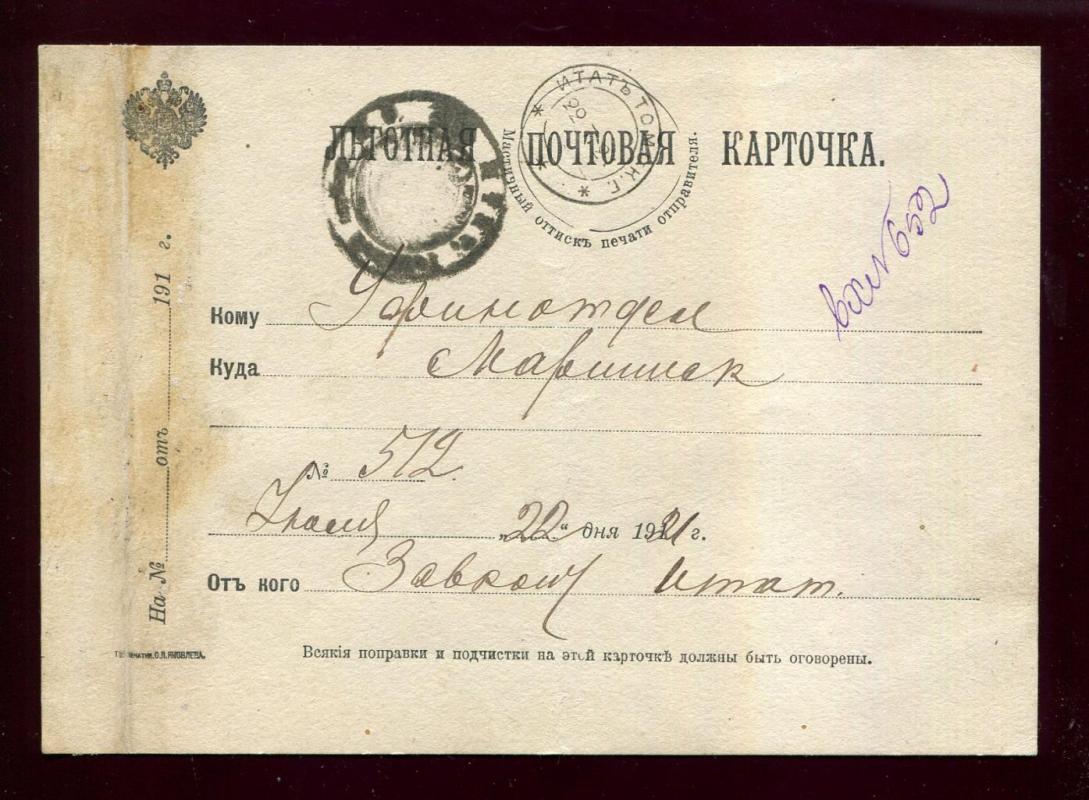 ЛЬГОТНАЯ ПОЧТОВАЯ КАРТОЧКА.
ИТАТЪ ТОМСК. Г.
22
Мастичный оттискъ печати отправителя.
вх № 652
Кому Уфинотдел
Куда Мариинск
№ 512.
"22" дня 1921 г.
Отъ кого Итат.
На № отъ 191 г.
Всякія поправки и подчистки на этой карточкѣ должны быть оговорены.
О.Л.ЯКОВЛЕВА.